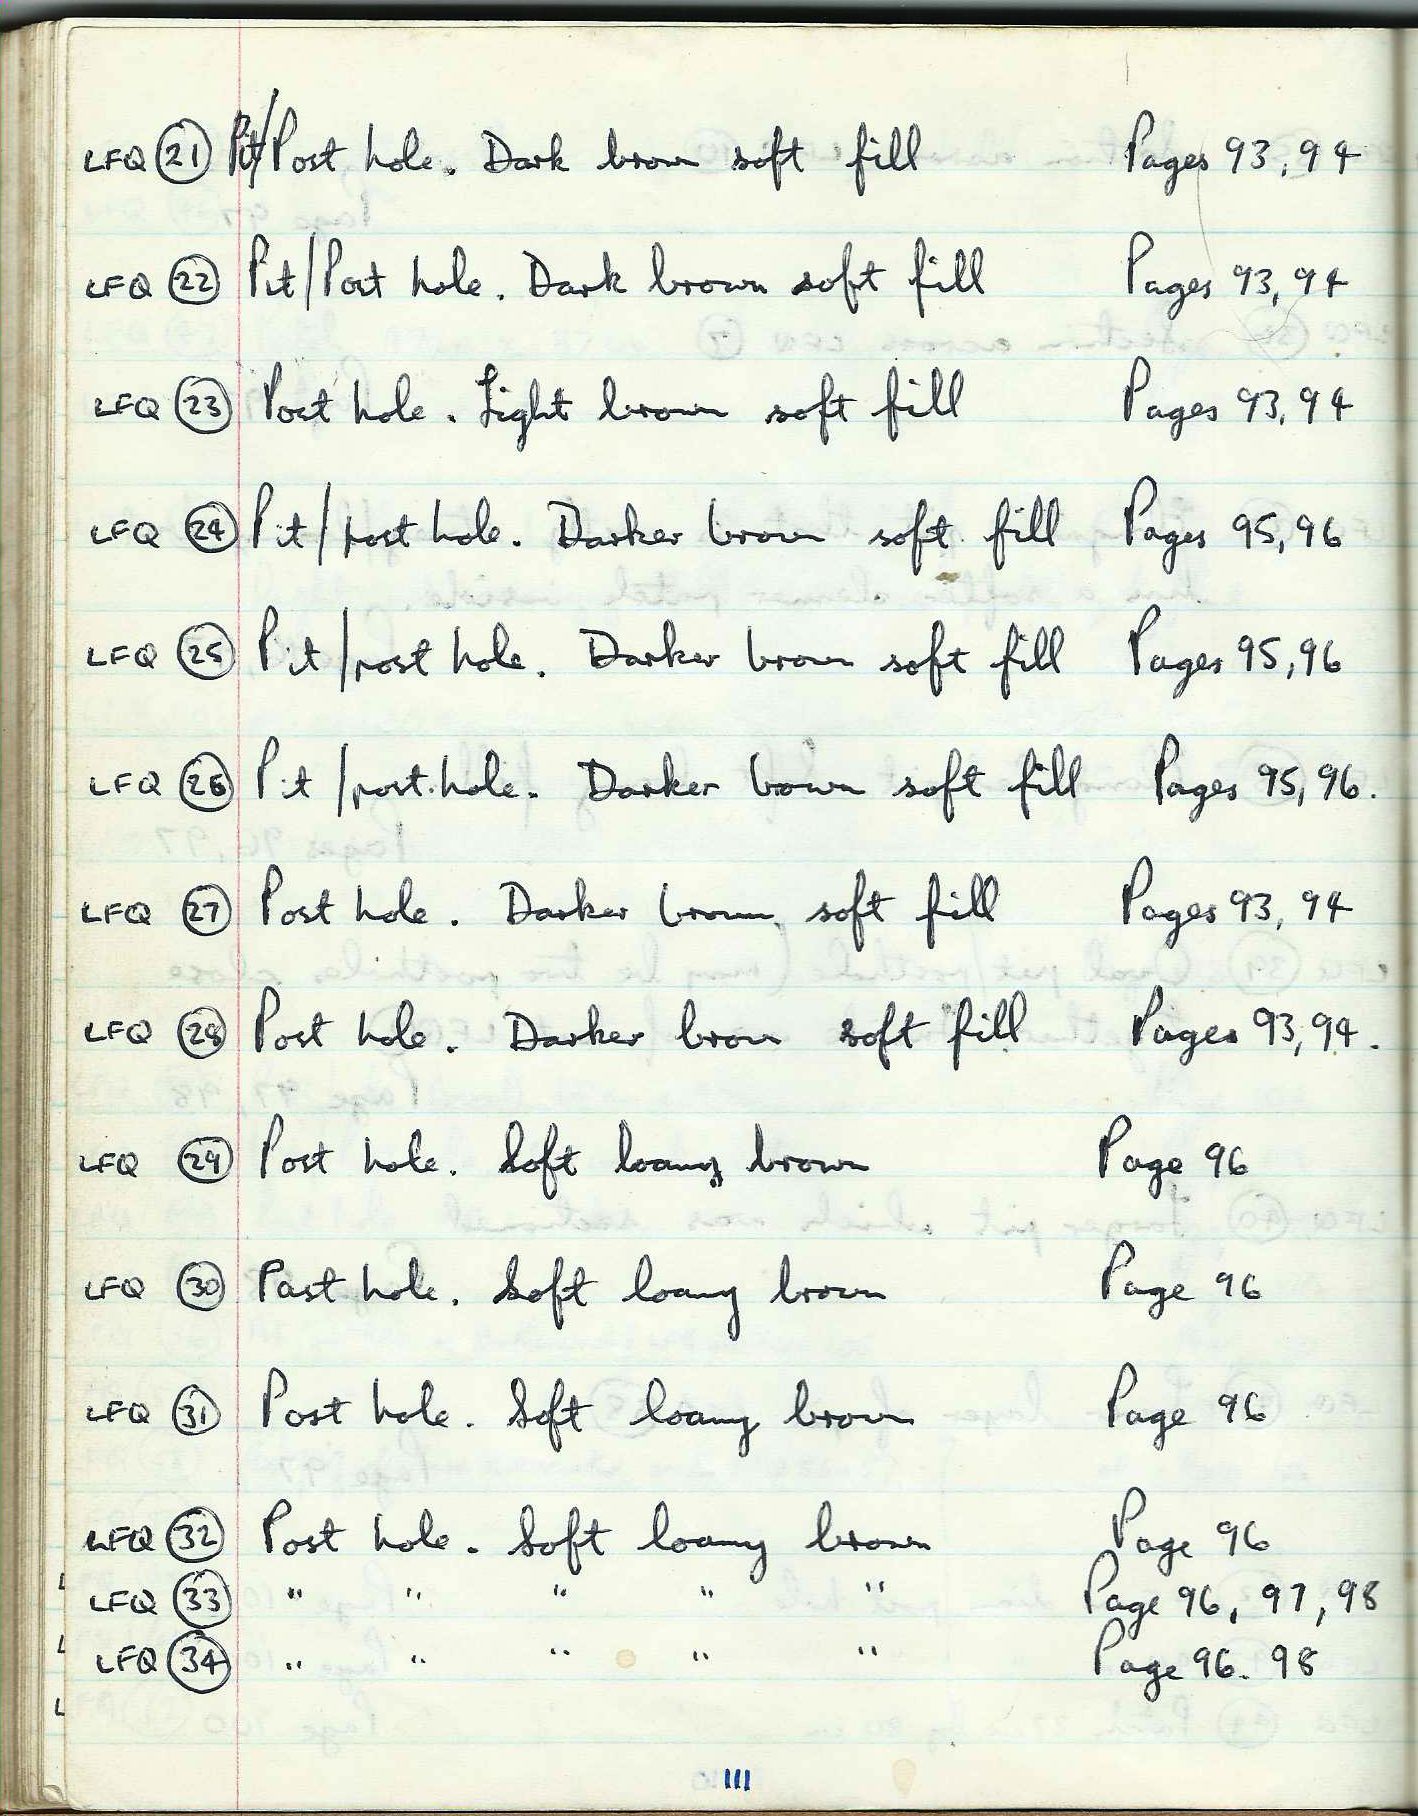 LFQ (21) Pit/Post hole. Dark brown soft fill Pages 93, 94
LFQ (22) Pit/Post hole. Dark brown soft fill Pages 93, 94
LFQ (23) Post hole. Light brown soft fill Pages 93, 94
LFQ (24) Pit/post hole. Darker brown soft fill Pages 95, 96
LFQ (25) Pit/post hole. Darker brown soft fill Pages 95, 96
LFQ (26) Pit/post hole. Darker brown soft fill Pages 95, 96.
LFQ (27) Post hole. Darker brown soft fill Pages 93, 94
LFQ (28) Post hole. Darker brown soft fill Pages 93, 94.
LFQ (29) Post hole. Soft loamy brown Page 96
LFQ (30) Post hole. Soft loamy brown Page 96
LFQ (31) Post hole. Soft loamy brown Page 96
LFQ (32) Post hole. Soft loamy brown Page 96
LFQ (33) " " " " " Page 96, 97, 98
LFQ (34) " " " " " Page 96. 98
111